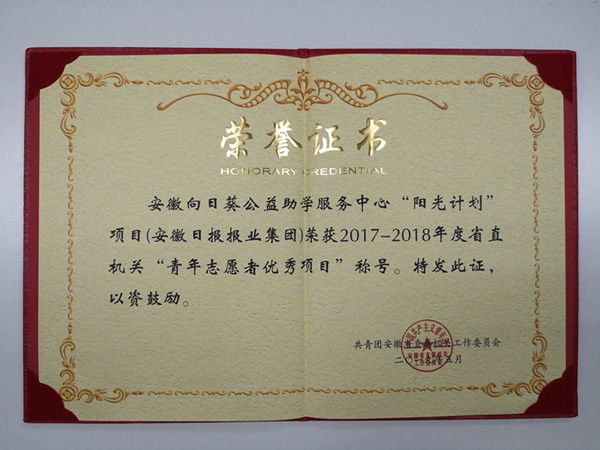 荣誉证书
HONORARY CREDENTIAL
安徽向日葵公益助学服务中心“阳光计划”
项目(安徽日报报业集团)荣获2017-2018年度省直
机关“青年志愿者优秀项目”称号。特发此证，
以资鼓励。
共青团安徽省直属机关工作委员会
五月